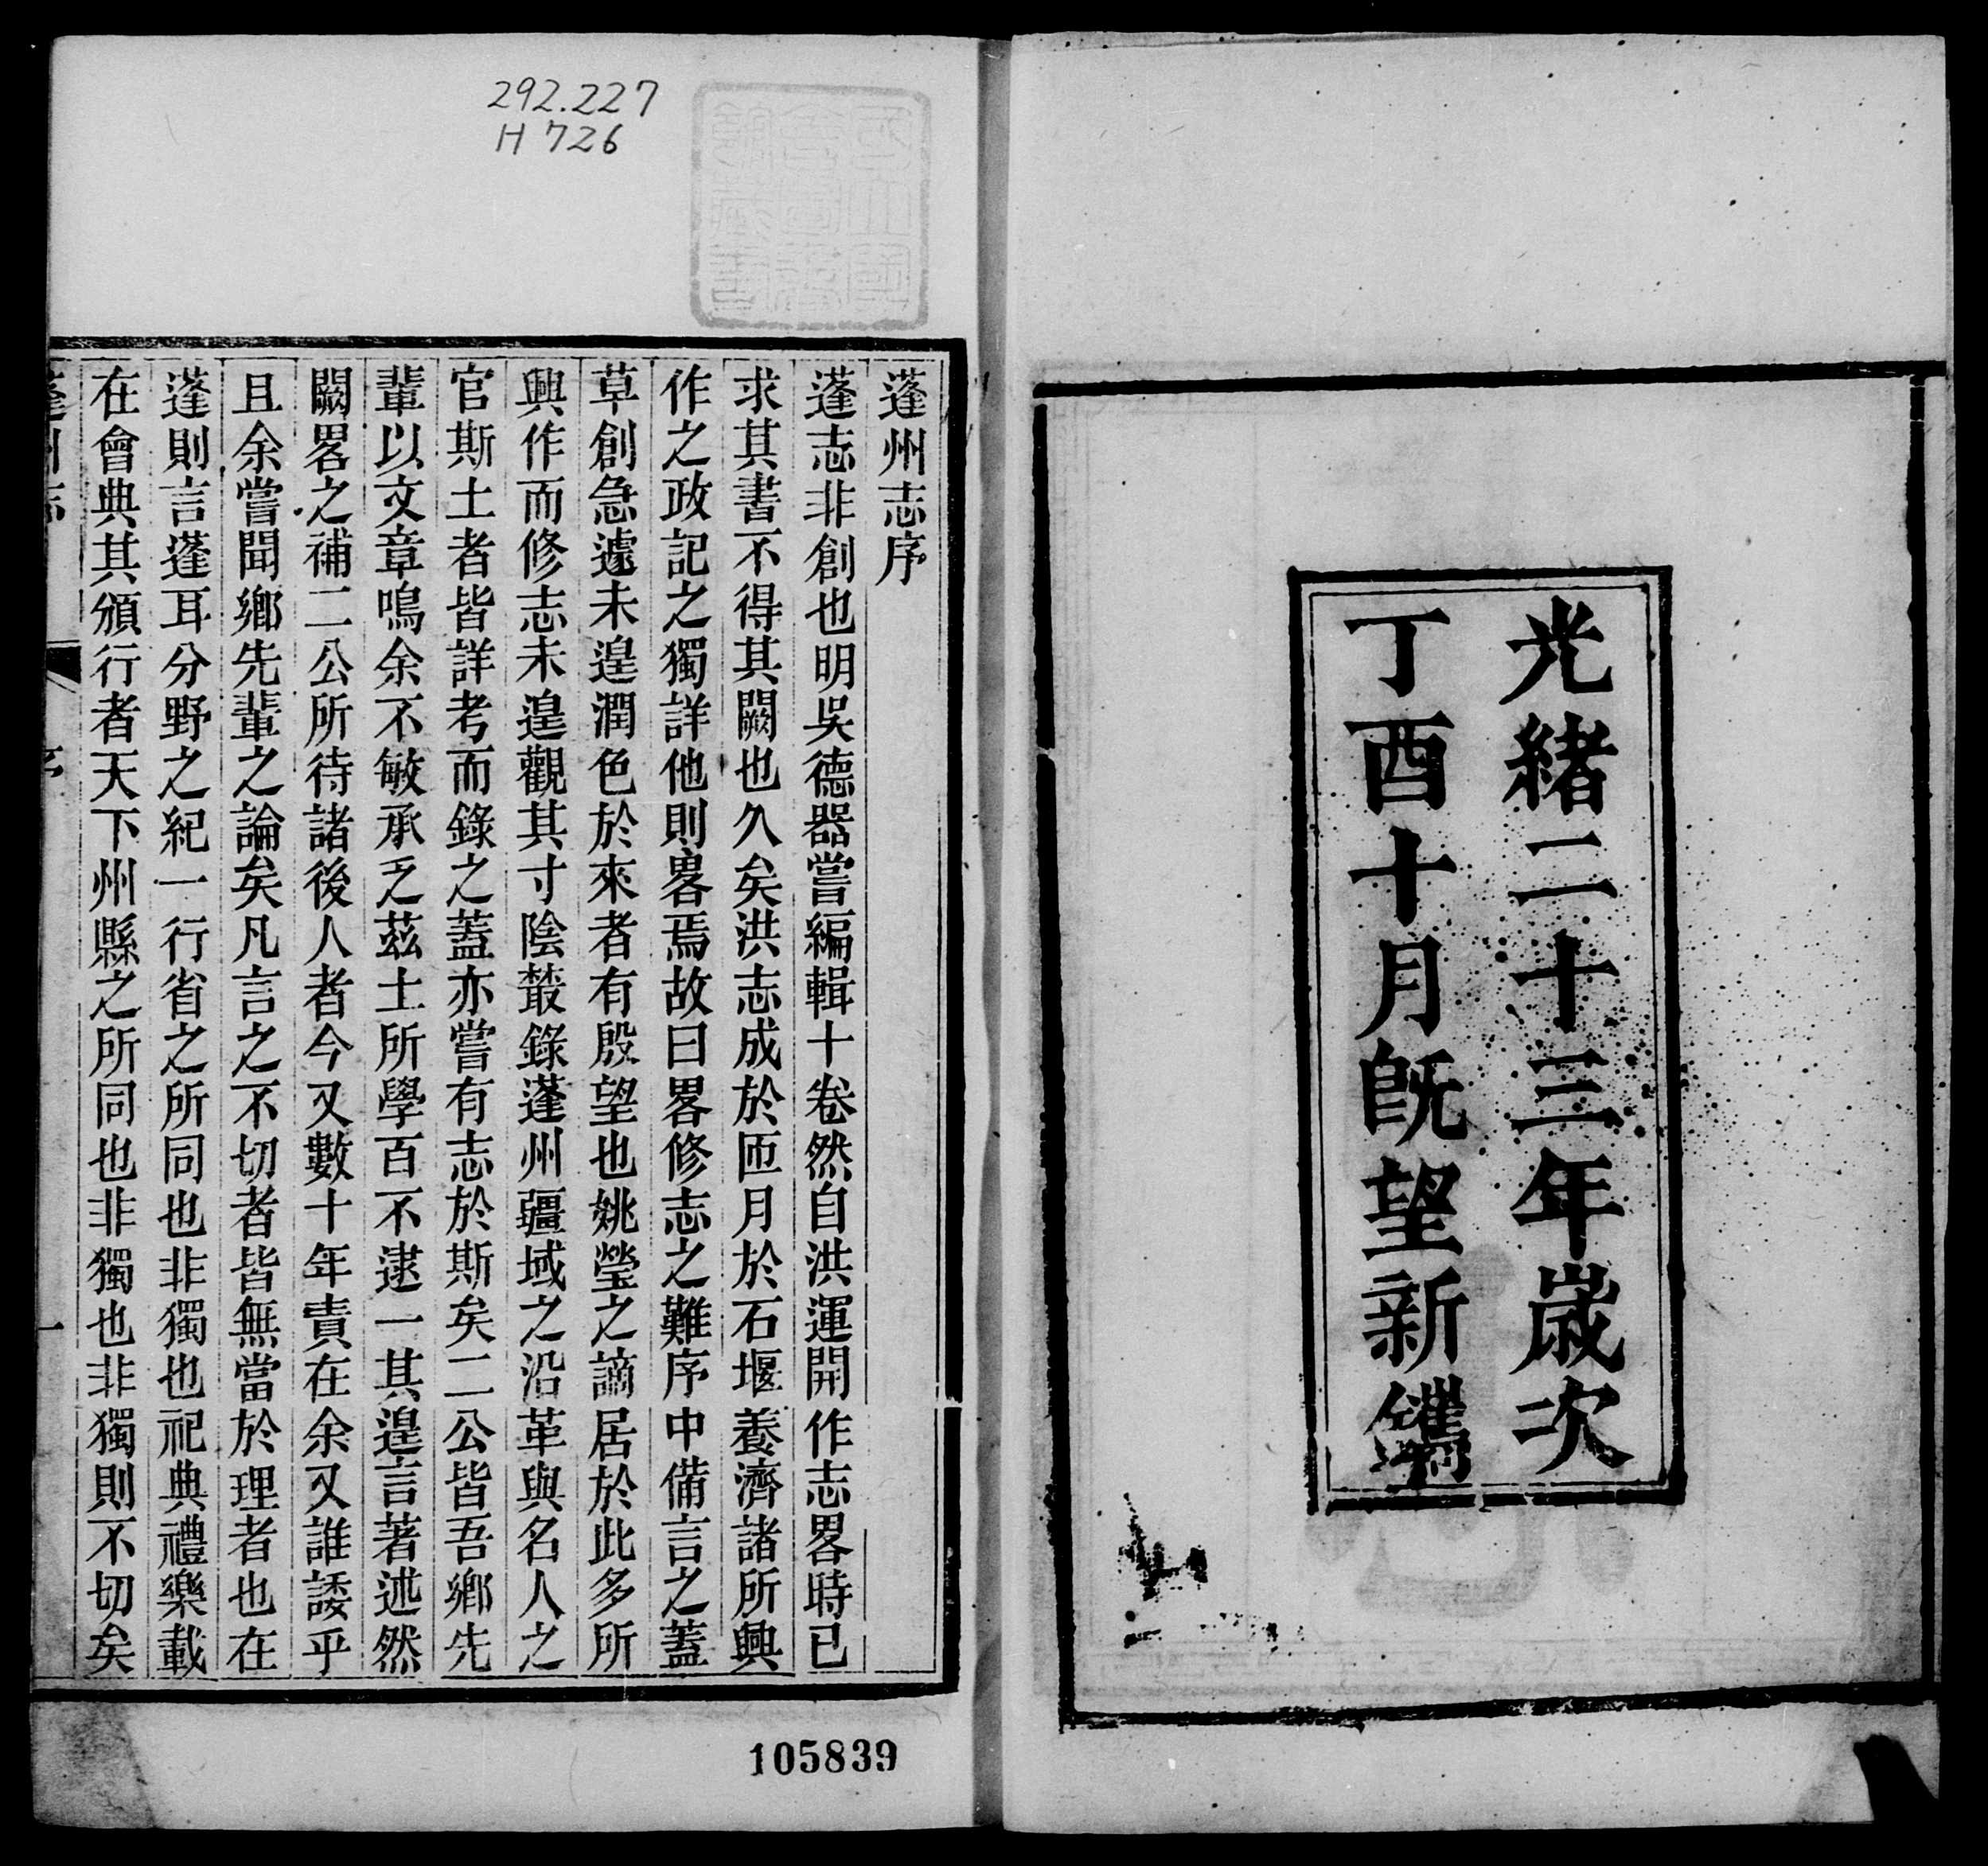 光緒二十三年歲次
丁酉十月旣望新鐫
292.227
H 726
蓬州志序
蓬志非創也明吳德器嘗編輯十卷然自洪運開作志畧時已
求其書不得其闕也久矣洪志成於匝月於石堰養濟諸所興
作之政記之獨詳他則畧焉故曰畧修志之難序中備言之蓋
草創急遽未遑潤色於來者有殷望也姚瑩之謫居於此多所
興作而修志未遑觀其寸陰叢錄蓬州疆域之沿革與名人之
官斯土者皆詳考而錄之蓋亦嘗有志於斯矣二公皆吾鄉先
輩以文章鳴余不敏承乏茲土所學百不逮一其遑言著述然
闕畧之補二公所待諸後人者今又數十年責在余又誰諉乎
且余嘗聞鄉先輩之論矣凡言之不切者皆無當於理者也在
蓬則言蓬耳分野之紀一行省之所同也非獨也祀典禮樂載
在會典其頒行者天下州縣之所同也非獨也非獨則不切矣
蓬州志
序
一
105839